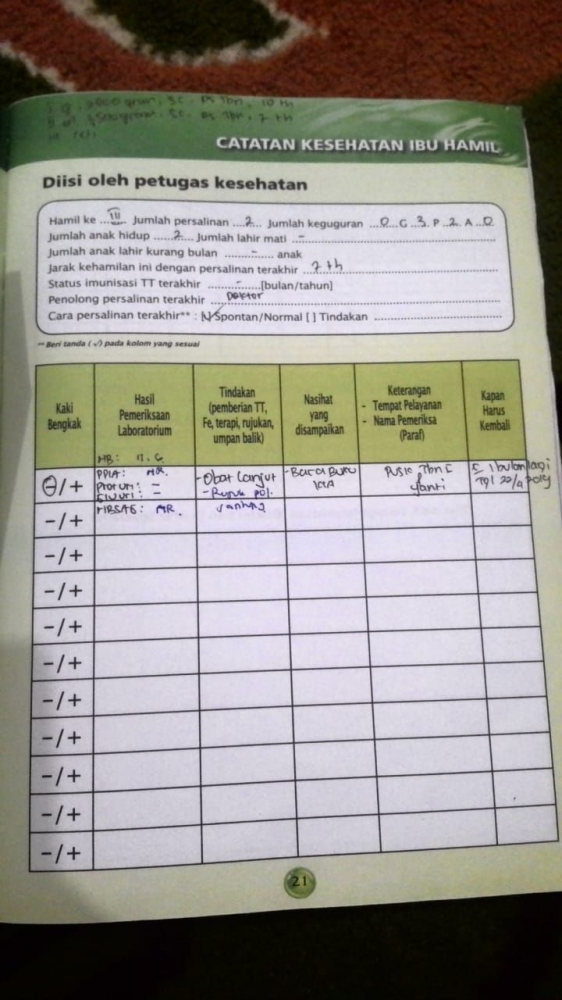 gram, SC.
CATATAN KESEHATAN IBU HAMIL
Diisi oleh petugas kesehatan
Hamil ke ...III.. Jumlah persalinan ...2... Jumlah keguguran ...0...G...3..P..2..A..0
Jumlah anak hidup .....2... Jumlah lahir mati ..-..
Jumlah anak lahir kurang bulan ..........-........ anak
Jarak kehamilan ini dengan persalinan terakhir ....7 th....
Status imunisasi TT terakhir .........-.......[bulan/tahun]
Penolong persalinan terakhir ....Dokter....
Cara persalinan terakhir** : [√] Spontan/Normal [ ] Tindakan ....................
** Beri tanda (√) pada kolom yang sesuai
Kaki Bengkak
Hasil Pemeriksaan Laboratorium
Tindakan (pemberian TT, Fe, terapi, rujukan, umpan balik)
Nasihat yang disampaikan
Keterangan
- Tempat Pelayanan
- Nama Pemeriksa (Paraf)
Kapan Harus Kembali
HB: 11.6
-/+
PPIA: NR.
Proturi: -
HBSAG: NR.
- Obat lanjut
- Rujuk
- Baca Buku KIA
Yanti
1 bulan lagi
-/+
-/+
-/+
-/+
-/+
-/+
-/+
-/+
-/+
-/+
21